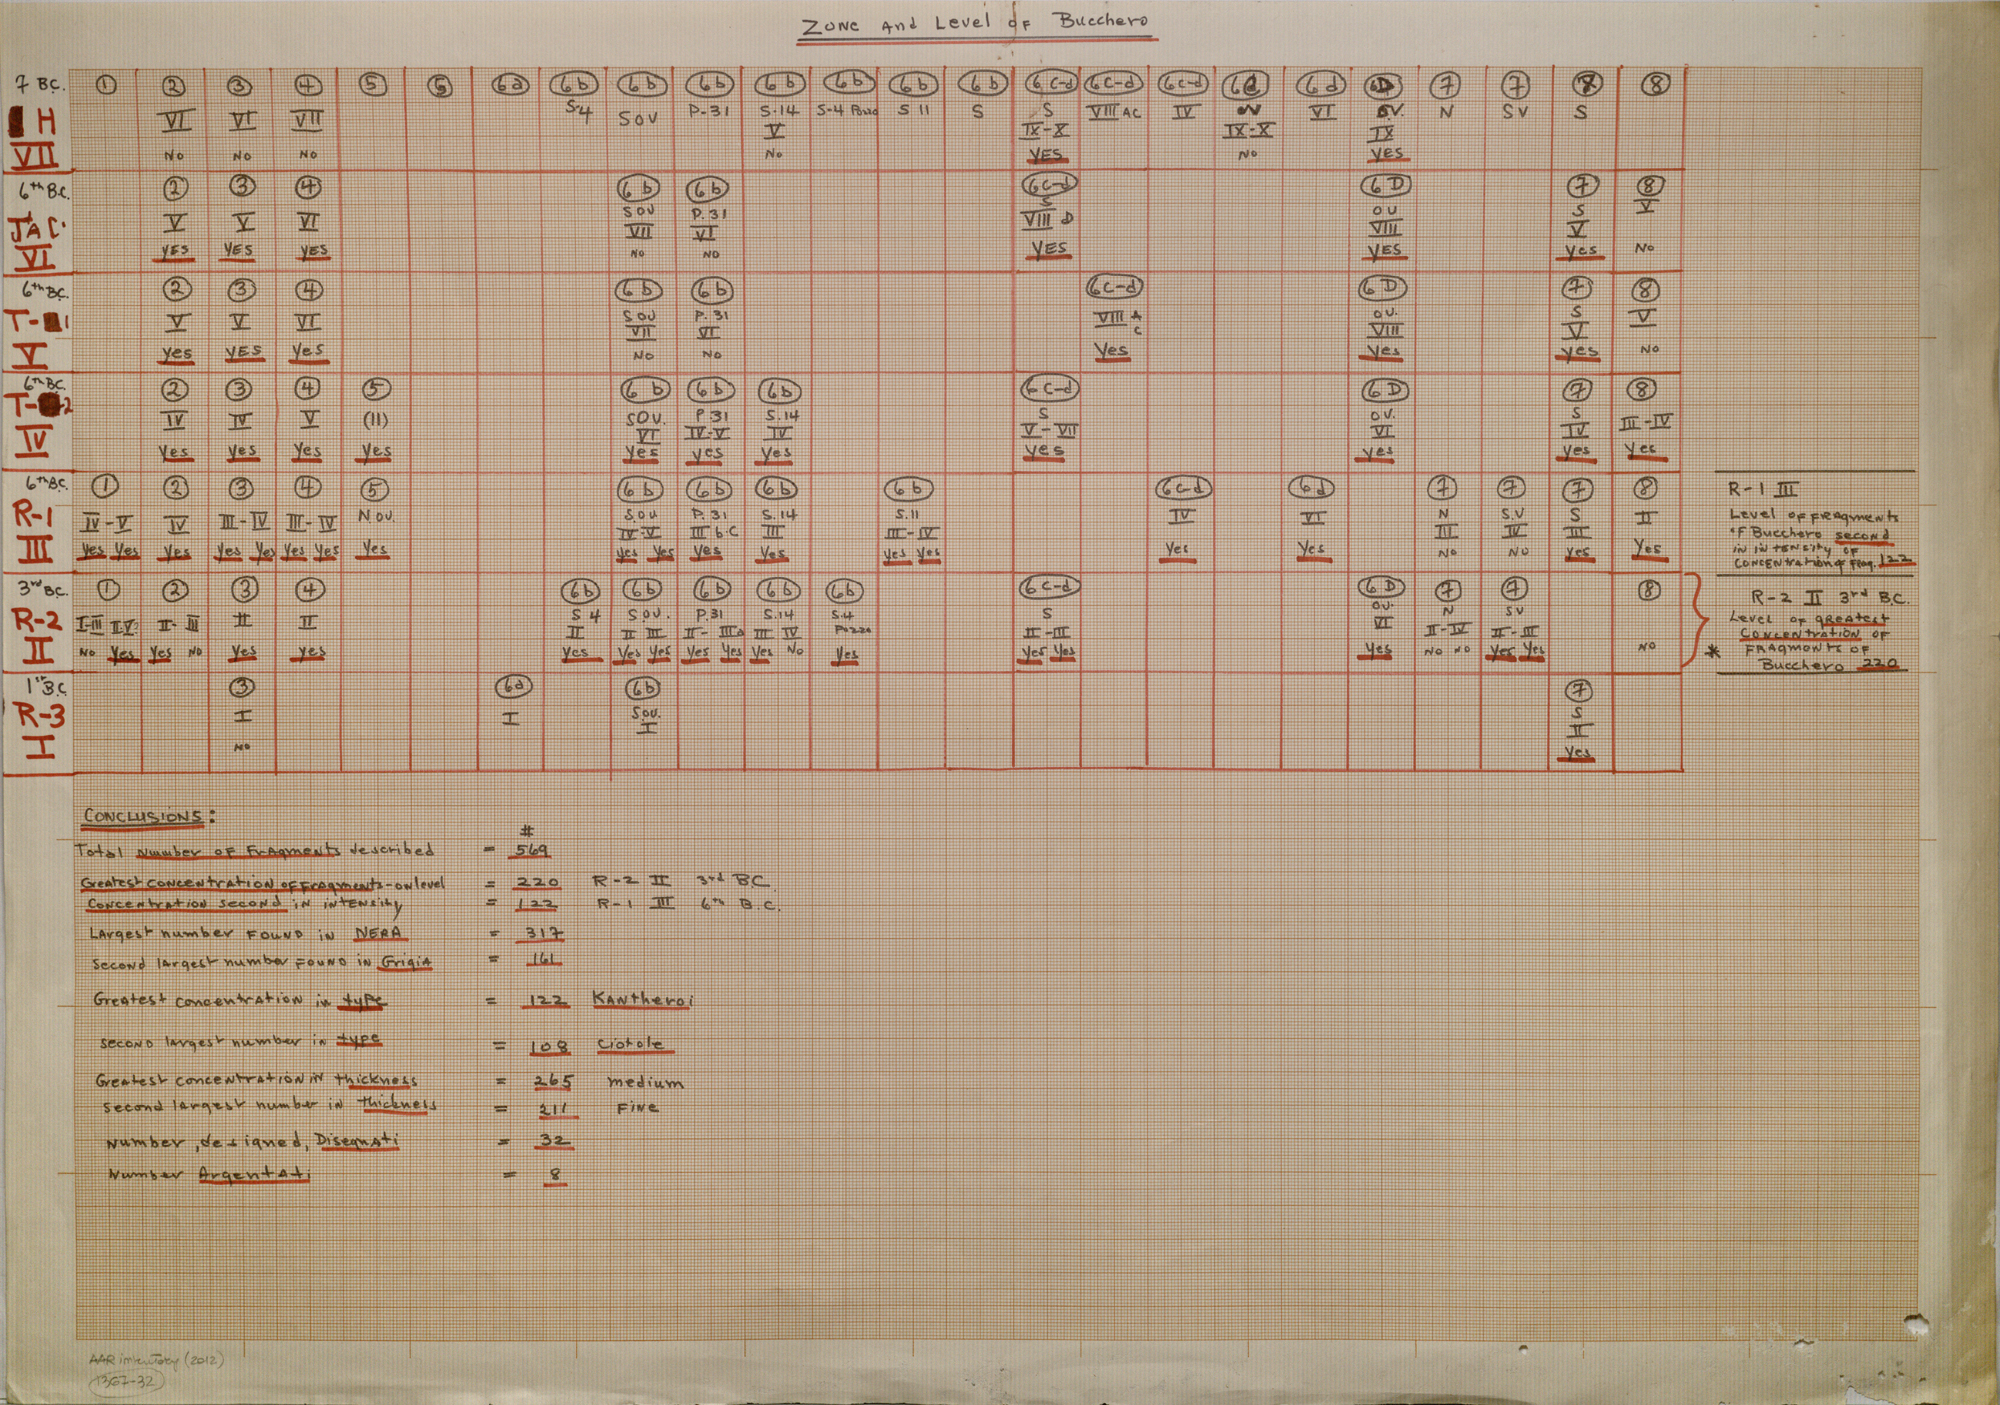 Zone and Level of Bucchero
7 B.C. 1 2 3 4 5 6 6a 6b 6b 6b 6b 6b 6b 6b 6c-d 6c-d 6c-d 6d 6d 6D 7 7 7 8
S-4 SOV P-31 S-14 S-4 Pozzo S 11 S S VIII AC IV VI OV. N SV S
H VI VI VII V IX-X IX-X IX
VII NO NO NO NO YES NO YES
6th B.C. 2 3 4 6b 6b 6c-d 6D 7 8
SOV P.31 S OV S V
JAC. V V VI VII VI VIII D VIII V
VI YES YES YES NO NO YES YES Yes NO
6th B.C. 2 3 4 6b 6b 6c-d 6D 7 8
T-1 V V VI SOV P.31 VIII A C OV. S V
VII VI VIII V
V Yes YES Yes NO NO Yes Yes Yes NO
6th B.C. 2 3 4 5 6b 6b 6b 6c-d 6D 7 8
T-2 IV IV V (II) SOV. P.31 S.14 S OV. S III-IV
IV VI IV-V IV V-VII VI IV
Yes Yes Yes Yes Yes yes Yes yes yes Yes Yes
6th B.C. 1 2 3 4 5 6b 6b 6b 6b 6c-d 6d 7 7 7 8
R-1 IV-V IV III-IV III-IV N OV. SOV P.31 S.14 S.11 IV VI N S.V S II
III IV-V III b-C III III-IV III IV III
Yes Yes Yes Yes Yes Yes Yes Yes Yes Yes Yes Yes Yes Yes Yes Yes NO NO Yes Yes
R-1 III
Level of Fragments
of Bucchero second
in intensity of
concentration of Frag. 122
3rd B.C. 1 2 3 4 6b 6b 6b 6b 6b 6c-d 6D 7 7 8
R-2 I-III II-V II-III II II S 4 SOV. P.31 S.14 S.4 Pozzo S OV. N SV
II II II III II-IIIa III IV II-III VI II-IV II-III
NO Yes Yes NO Yes Yes Yes Yes Yes Yes Yes Yes NO Yes Yes Yes Yes NO NO Yes Yes NO
R-2 II 3rd B.C.
Level of greatest
concentration of
* Fragments of
Bucchero 220
1st B.C. 3 6a 6b 7
R-3 I I SOV. I S II
I NO Yes
CONCLUSIONS:
#
Total Number of Fragments described = 569
Greatest concentration of Fragments-on level = 220 R-2 II 3rd B.C.
Concentration second in intensity = 122 R-1 III 6th B.C.
Largest number found in NERA = 317
Second largest number found in Grigia = 161
Greatest concentration in type = 122 Kantheroi
second largest number in type = 108 Ciotole
Greatest concentration in thickness = 265 medium
second largest number in thickness = 211 Fine
Number, designed, Disegnati = 32
Number Argentati = 8
AAR inventory (2012)
1367-32